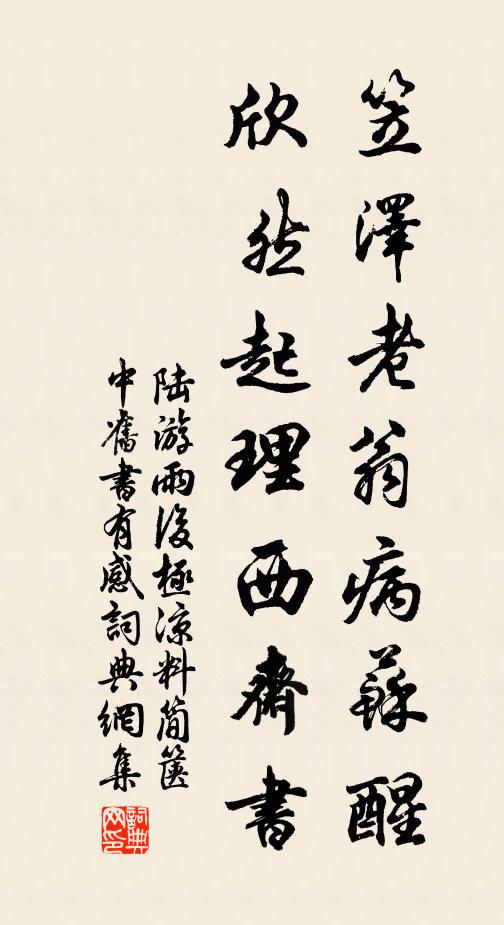 笠澤老翁病蘇醒
欣然起理西齋書
陆游雨後極凉料简箧
中舊書有感詞典網集
詞典网印